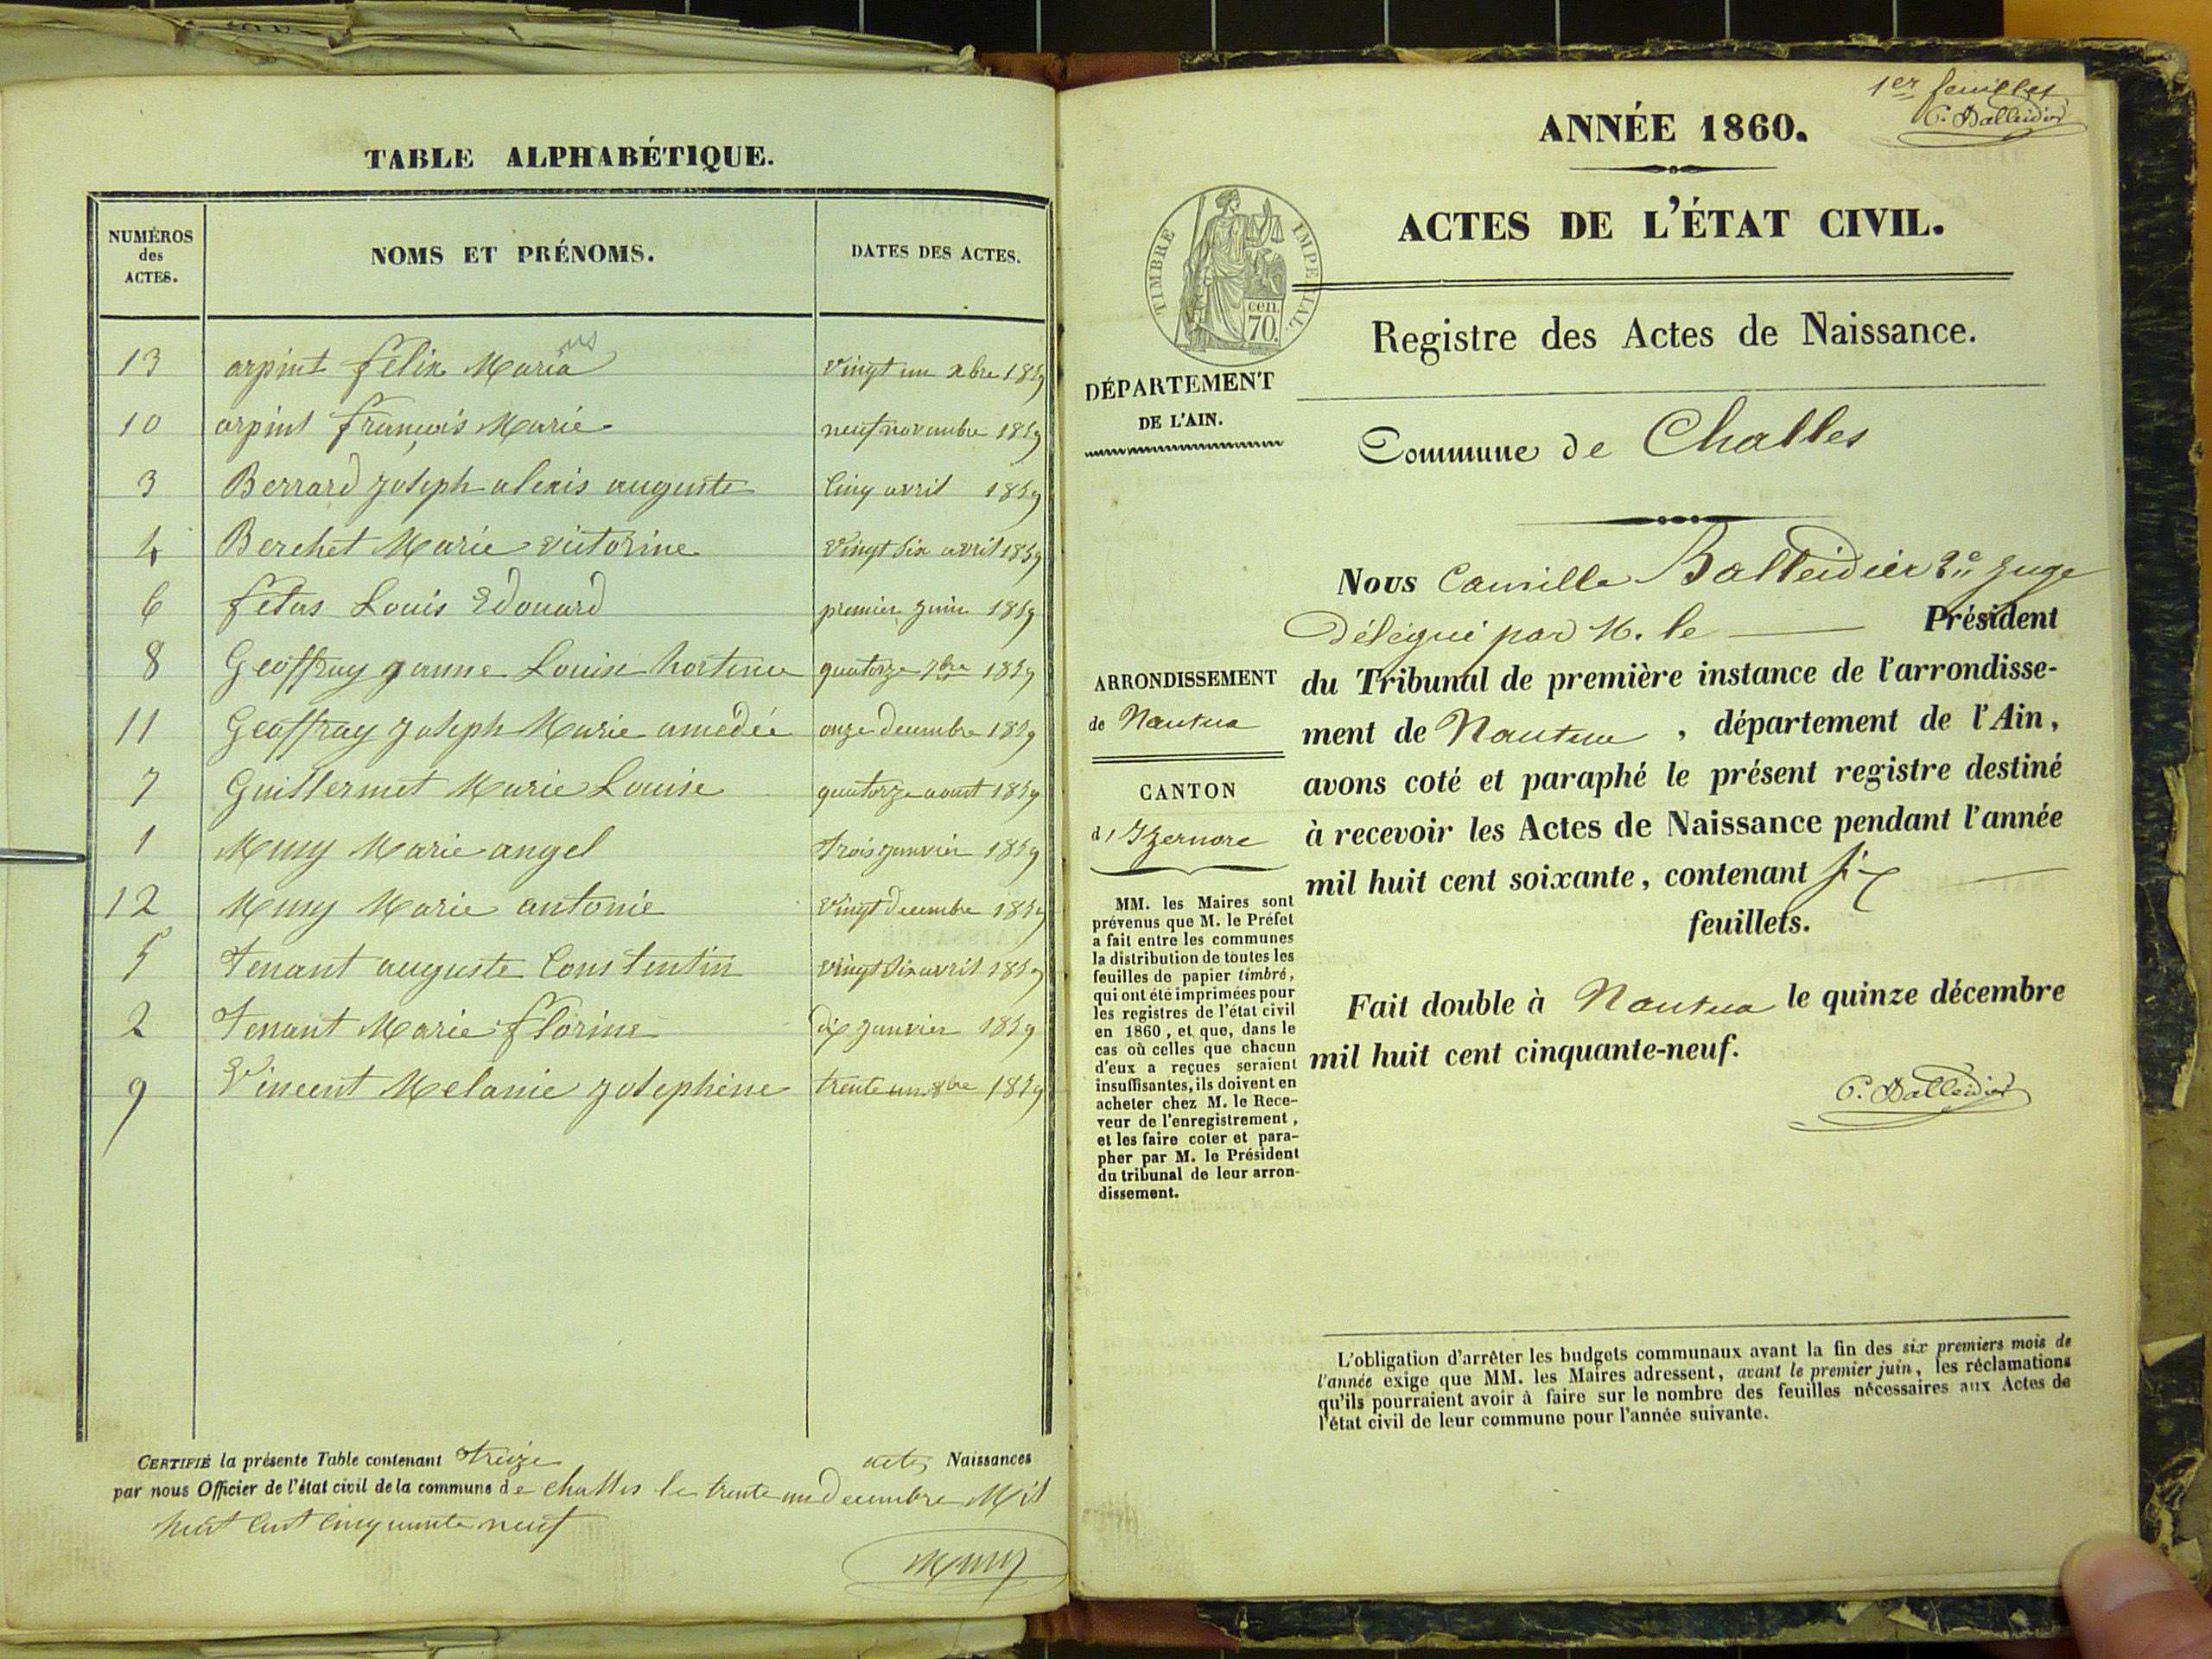 TABLE ALPHABÉTIQUE.
NUMÉROS des ACTES. NOMS ET PRÉNOMS. DATES DES ACTES.
13 arpint félix Maria us vingt un xbre 1859
10 arpint françois Marie neuf novembre 1859
3 Berrard joseph alexis auguste Cinq avril 1859
4 Berchet Marie victorine Vingt six avril 1859
6 fétas Louis Edouard premier juin 1859
8 Geoffray jeanne Louise hortense quatorze 7bre 1859
11 Geoffray joseph Marie amédée onze decembre 1859
7 Guillermet Marie Louise quatorze aout 1859
1 Muny Marie angel trois janvier 1859
12 Muny Marie antonie Vingt decembre 1859
5 Tenant auguste Constentin vingt six avril 1859
2 Tenant Marie florine dix janvier 1859
9 Vincent Melanie josephine trente un 8bre 1859
CERTIFIÉ la présente Table contenant treize actes Naissances
par nous Officier de l'état civil de la commune de challes le trente un decembre Mil
huit cent cinquante neuf
1er feuillet
C. Balleidier
ANNÉE 1860.
ACTES DE L'ÉTAT CIVIL.
TIMBRE IMPERIAL
cen. 70.
Registre des Actes de Naissance.
DÉPARTEMENT
DE L'AIN.
Commune de Challes
Nous Camille Balleidier Juge
Délégué par M. le Président
du Tribunal de première instance de l'arrondisse-
ment de Nantua, département de l'Ain,
avons coté et paraphé le présent registre destiné
à recevoir les Actes de Naissance pendant l'année
mil huit cent soixante, contenant six
feuillets.
Fait double à Nantua le quinze décembre
mil huit cent cinquante-neuf.
C. Balleidier
ARRONDISSEMENT
de Nantua
CANTON
d'Izernore
MM. les Maires sont
prévenus que M. le Préfet
a fait entre les communes
la distribution de toutes les
feuilles de papier timbré,
qui ont été imprimées pour
les registres de l'état civil
en 1860, et que, dans le
cas où celles que chacun
d'eux a reçues seraient
insuffisantes, ils doivent en
acheter chez M. le Rece-
veur de l'enregistrement,
et les faire coter et para-
pher par M. le Président
du tribunal de leur arron-
dissement.
L'obligation d'arrêter les budgets communaux avant la fin des six premiers mois de
l'année exige que MM. les Maires adressent, avant le premier juin, les réclamations
qu'ils pourraient avoir à faire sur le nombre des feuilles nécessaires aux Actes de
l'état civil de leur commune pour l'année suivante.